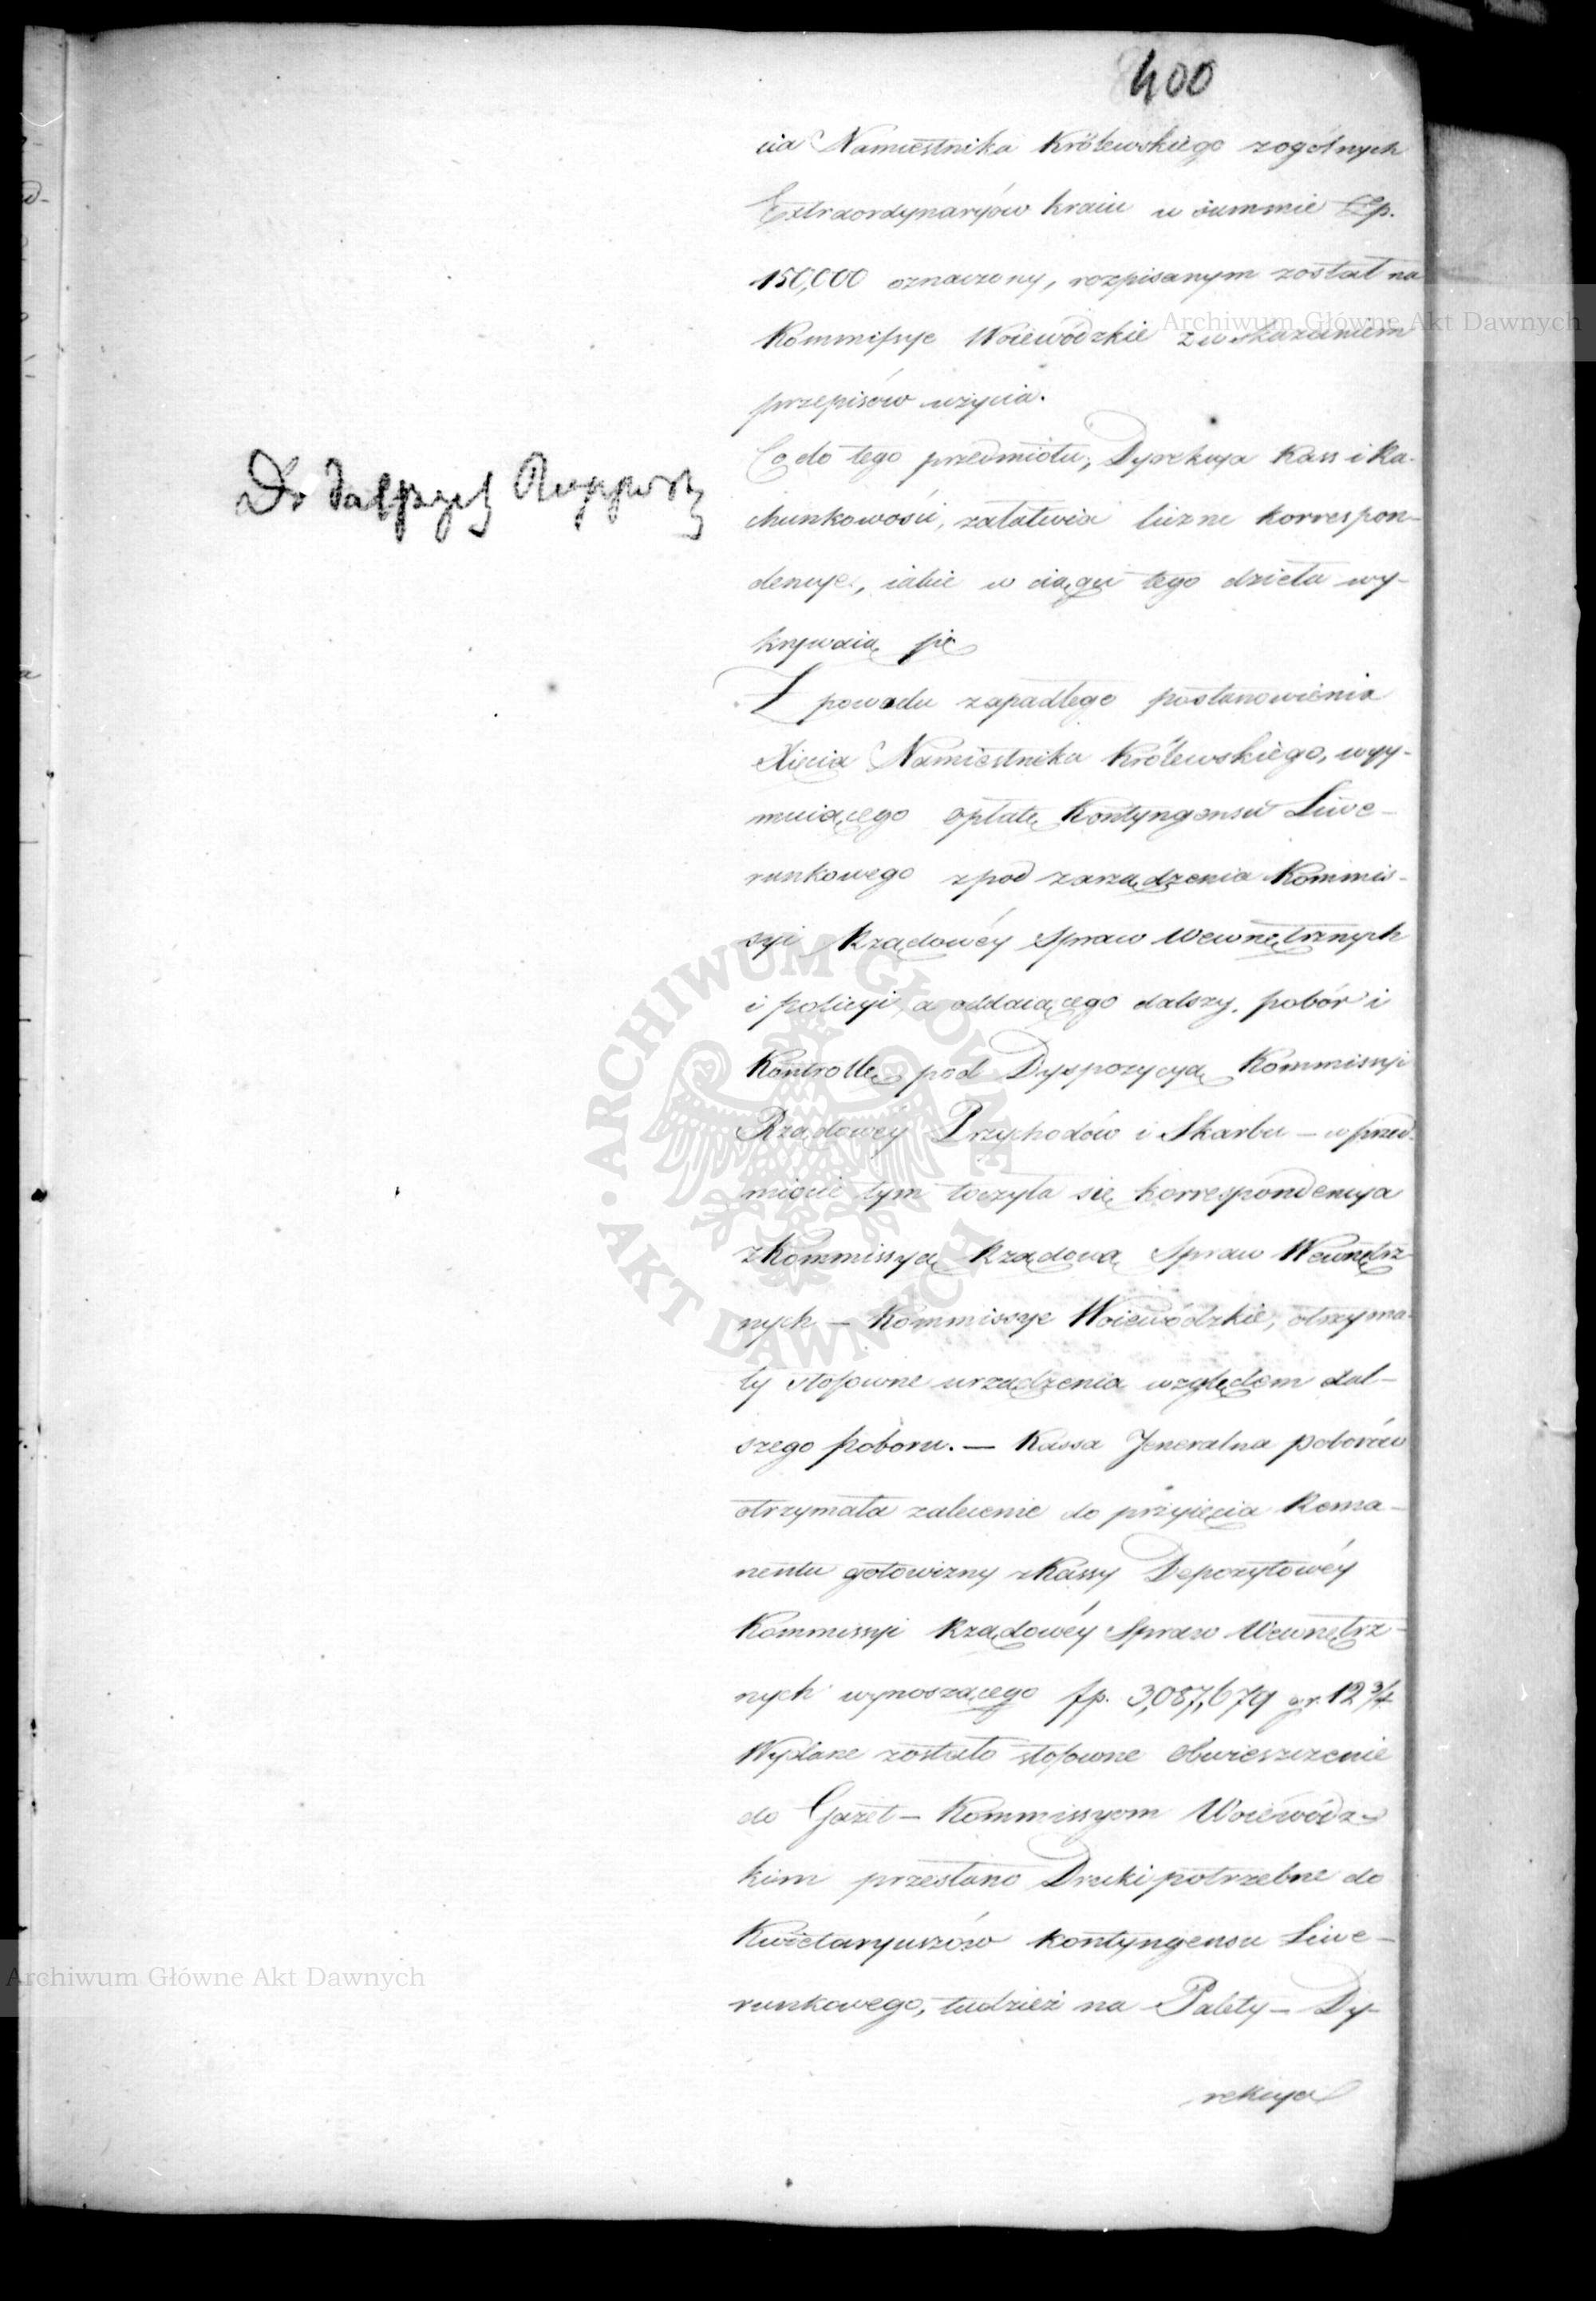 400
cia Namiestnika Królewskiego zogólnych
Extraordynaryów kraiu w summie Zp.
150,000 oznaczony, rozpisanym został na
Kommissye Woiewódzkie zwskazaniem
przepisów użycia.
Co do tego przedmiotu, Dyrekcya Kass i Ra-
chunkowości, załatwia liczne korrespon-
dencye, iakie w ciągu tego dzieła wy-
krywaią się
Do dalszych Rapport
Z powodu zapadłego postanowienia
Xięcia Namiestnika Królewskiego, wyy-
muiącego opłatę Kontyngensu Liwe-
runkowego zpod zarządzenia Kommis-
syi Rządowéy Spraw Wewnętrznych
i policyi, a oddaiącego dalszy, pobór i
Kontrollę pod Dyspozycyą Kommissyi
Rządowéy Przychodów i Skarbu – w przed-
miocie tym toczyła się korrespondencya
z Kommissyą Rządową Spraw Wewnętrz-
nych – Kommissye Woiewódzkie, otrzyma-
ły stosowne urządzenia względem dal-
szego poboru. – Kassa Jeneralna poborów
otrzymała zalecenie do przyięcia Rema-
nentu gotowizny z Kassy Depozytowéy
Kommissyi Rządowéy Spraw Wewnętrz-
nych wynoszącego fp. 3,087,679 gr. 12 3/4
Wydane zostało stosowne obwieszczenie
do Gazet – Kommissyom Woiewódz-
kim przesłano Druki potrzebne do
Kwietaryuszów kontyngensu Liwe-
runkowego, tudzież na Palety – Dy-
rekcya
Archiwum Główne Akt Dawnych
Archiwum Główne Akt Dawnych
ARCHIWUM GŁÓWNE AKT DAWNYCH